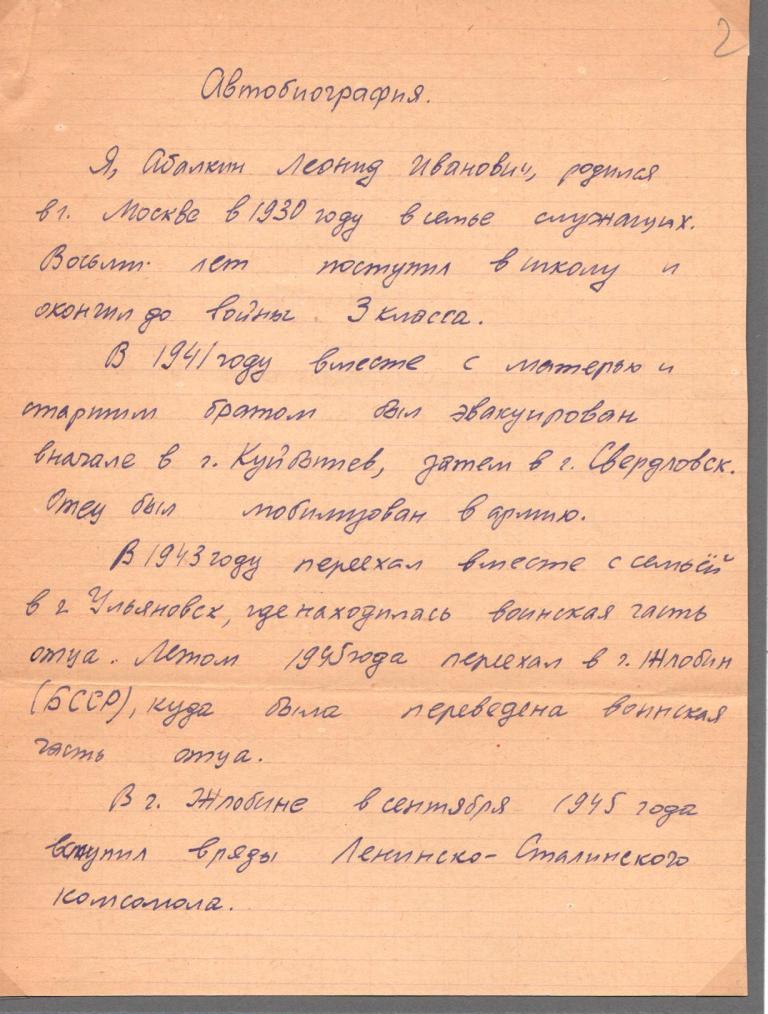 2
Автобиография.
Я, Абалкин Леонид Иванович, родился
в г. Москве в 1930 году в семье служащих.
Восьми лет поступил в школу и
окончил до войны 3 класса.
В 1941 году вместе с матерью и
старшим братом был эвакуирован
вначале в г. Куйбышев, затем в г. Свердловск.
Отец был мобилизован в армию.
В 1943 году переехал вместе с семьёй
в г Ульяновск, где находилась воинская часть
отца. Летом 1945 года переехал в г. Жлобин
(БССР), куда была переведена воинская
часть отца.
В г. Жлобине в сентября 1945 года
вступил в ряды Ленинско-Сталинского
комсомола.